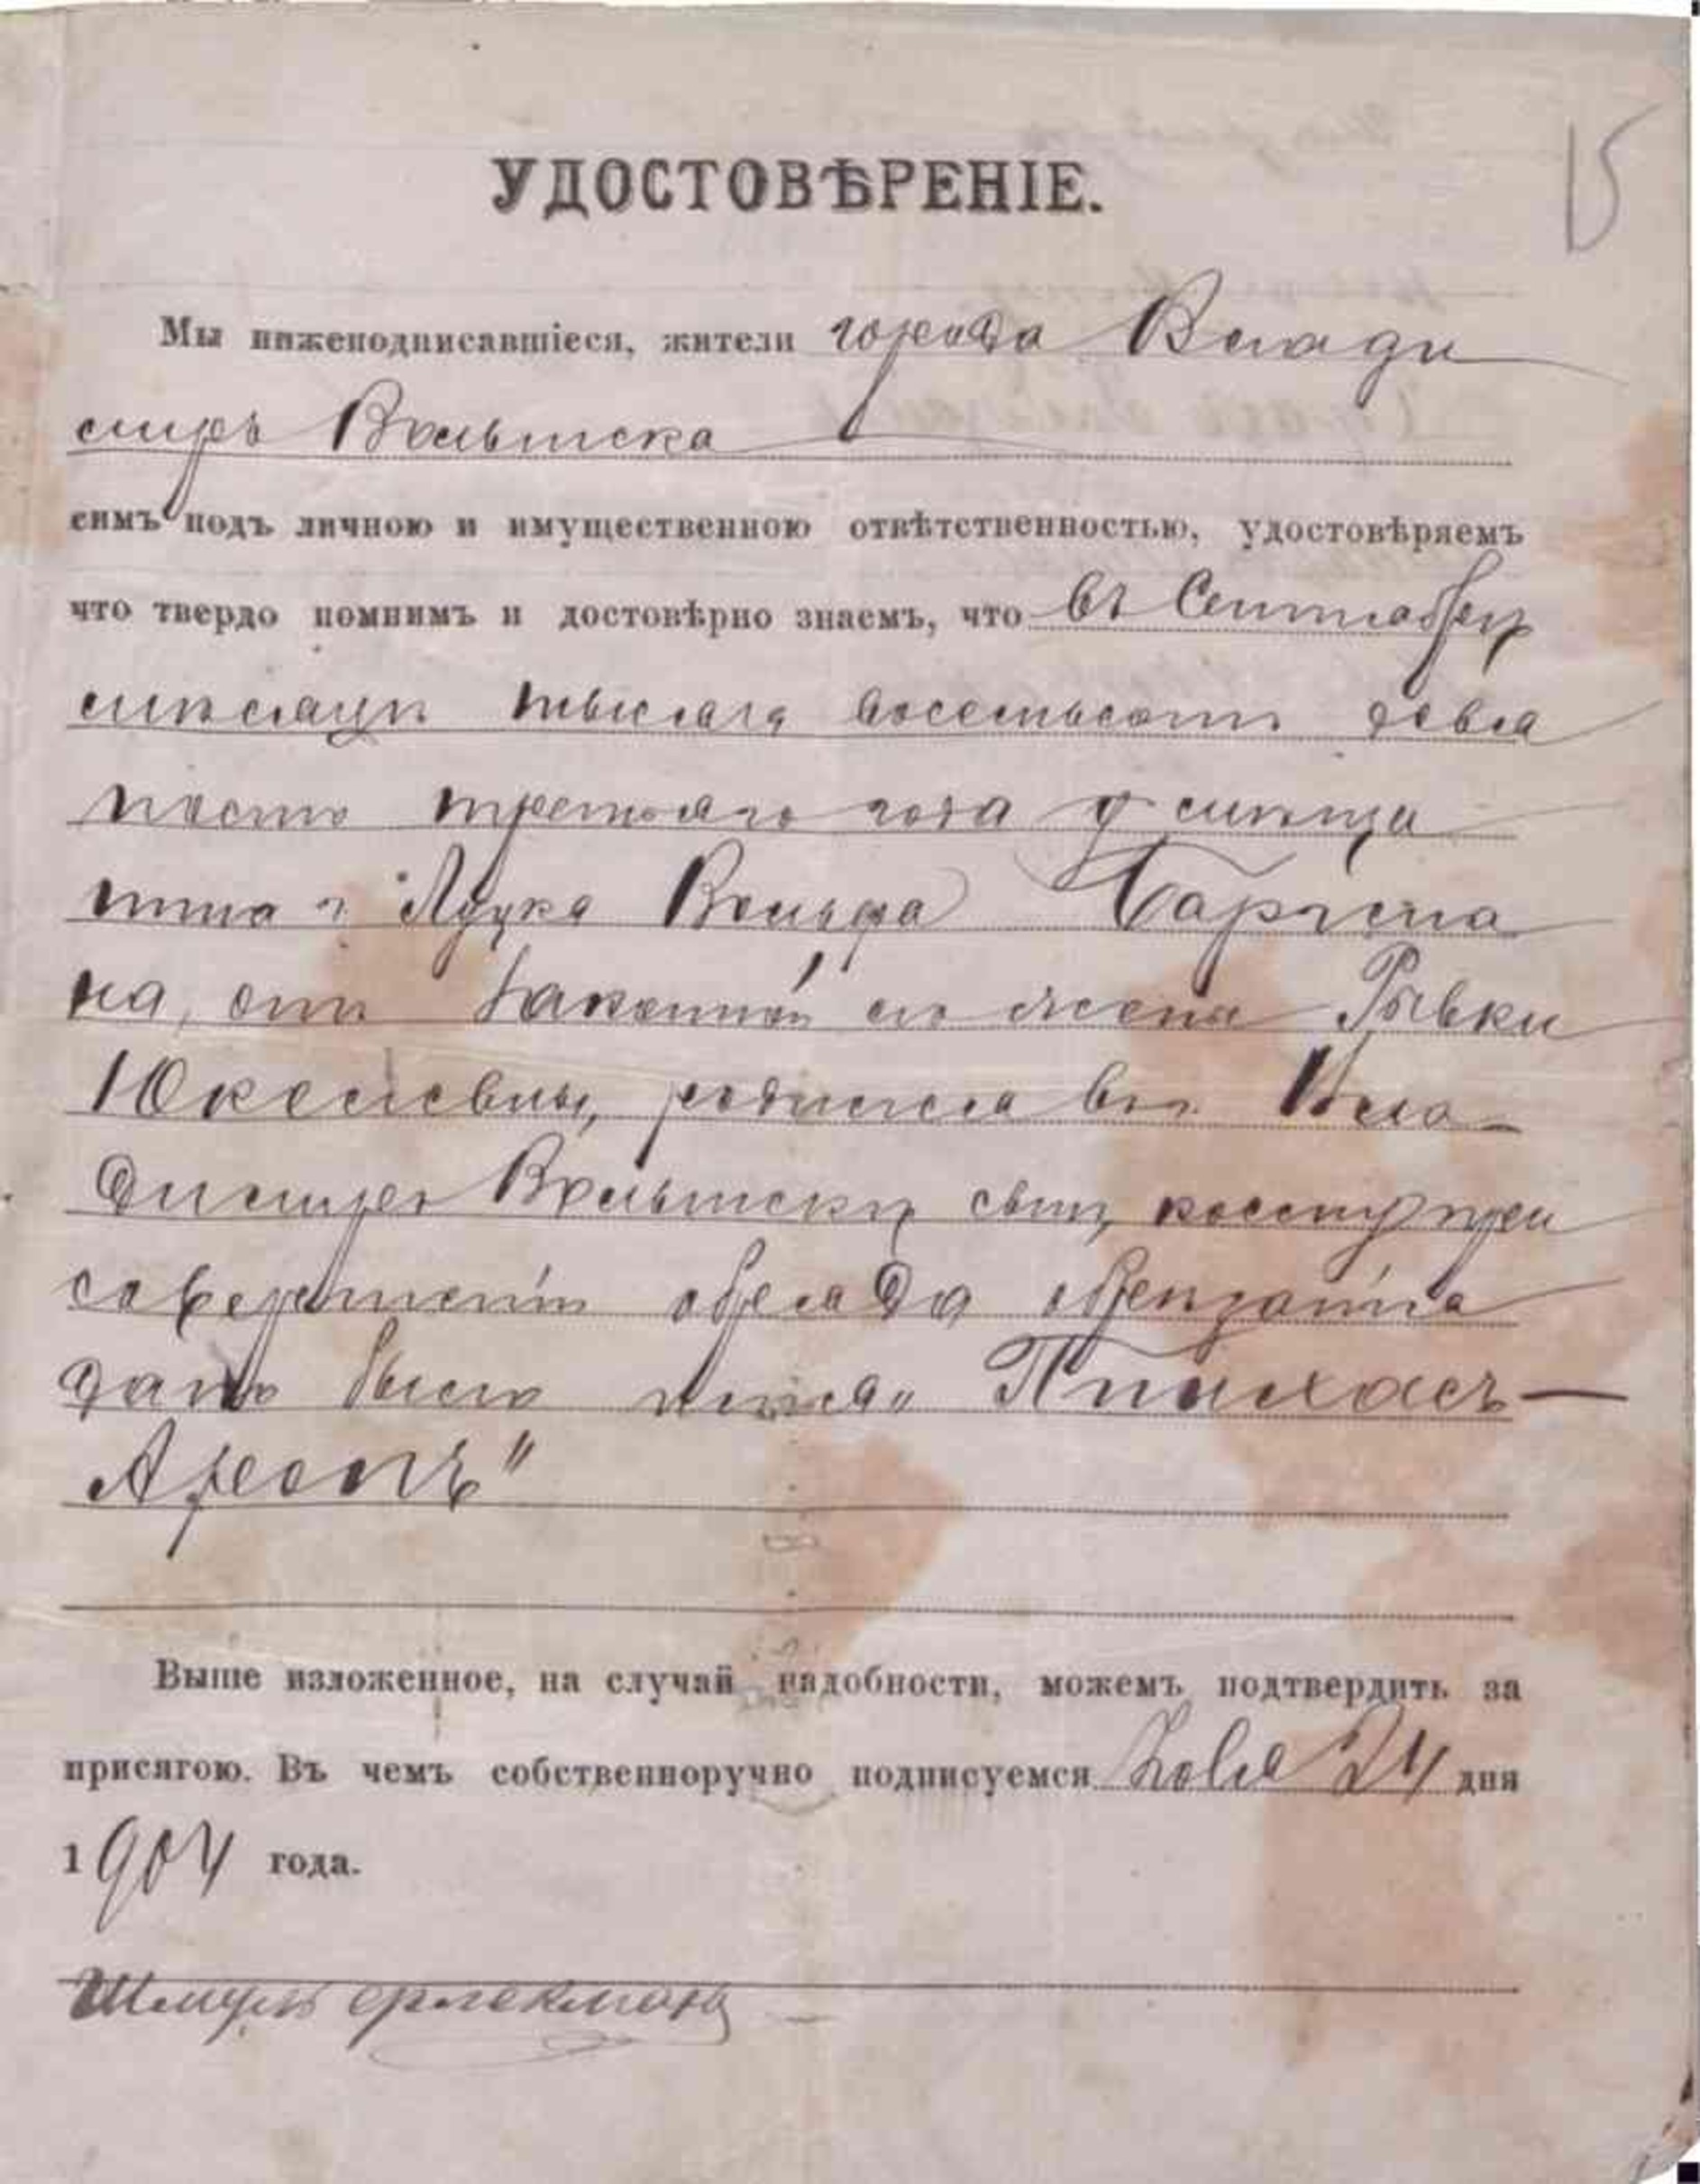 15
УДОСТОВѢРЕНІЕ.
Мы нижеподписавшіеся, жители города Влади
міръ Волынска
симъ подъ личною и имущественною отвѣтственностью, удостовѣряемъ
что твердо помнимъ и достовѣрно знаемъ, что въ Сентябрѣ
мѣсяцѣ тысяча восемьсотъ девя
носто третьяго года у мѣща
нина г. Луцка Вольфа Баргма
на, отъ законной его жены Рывки
Юкелевны, родился въ г. Вла
димірѣ Волынскѣ сынъ, коему при
совершеніи обряда обрѣзанія
дано было имя „Пинхасъ —
Аронъ"
Выше изложенное, на случай надобности, можемъ подтвердить за
присягою. Въ чемъ собственноручно подписуемся 24 дня
1904 года.
Шмуль